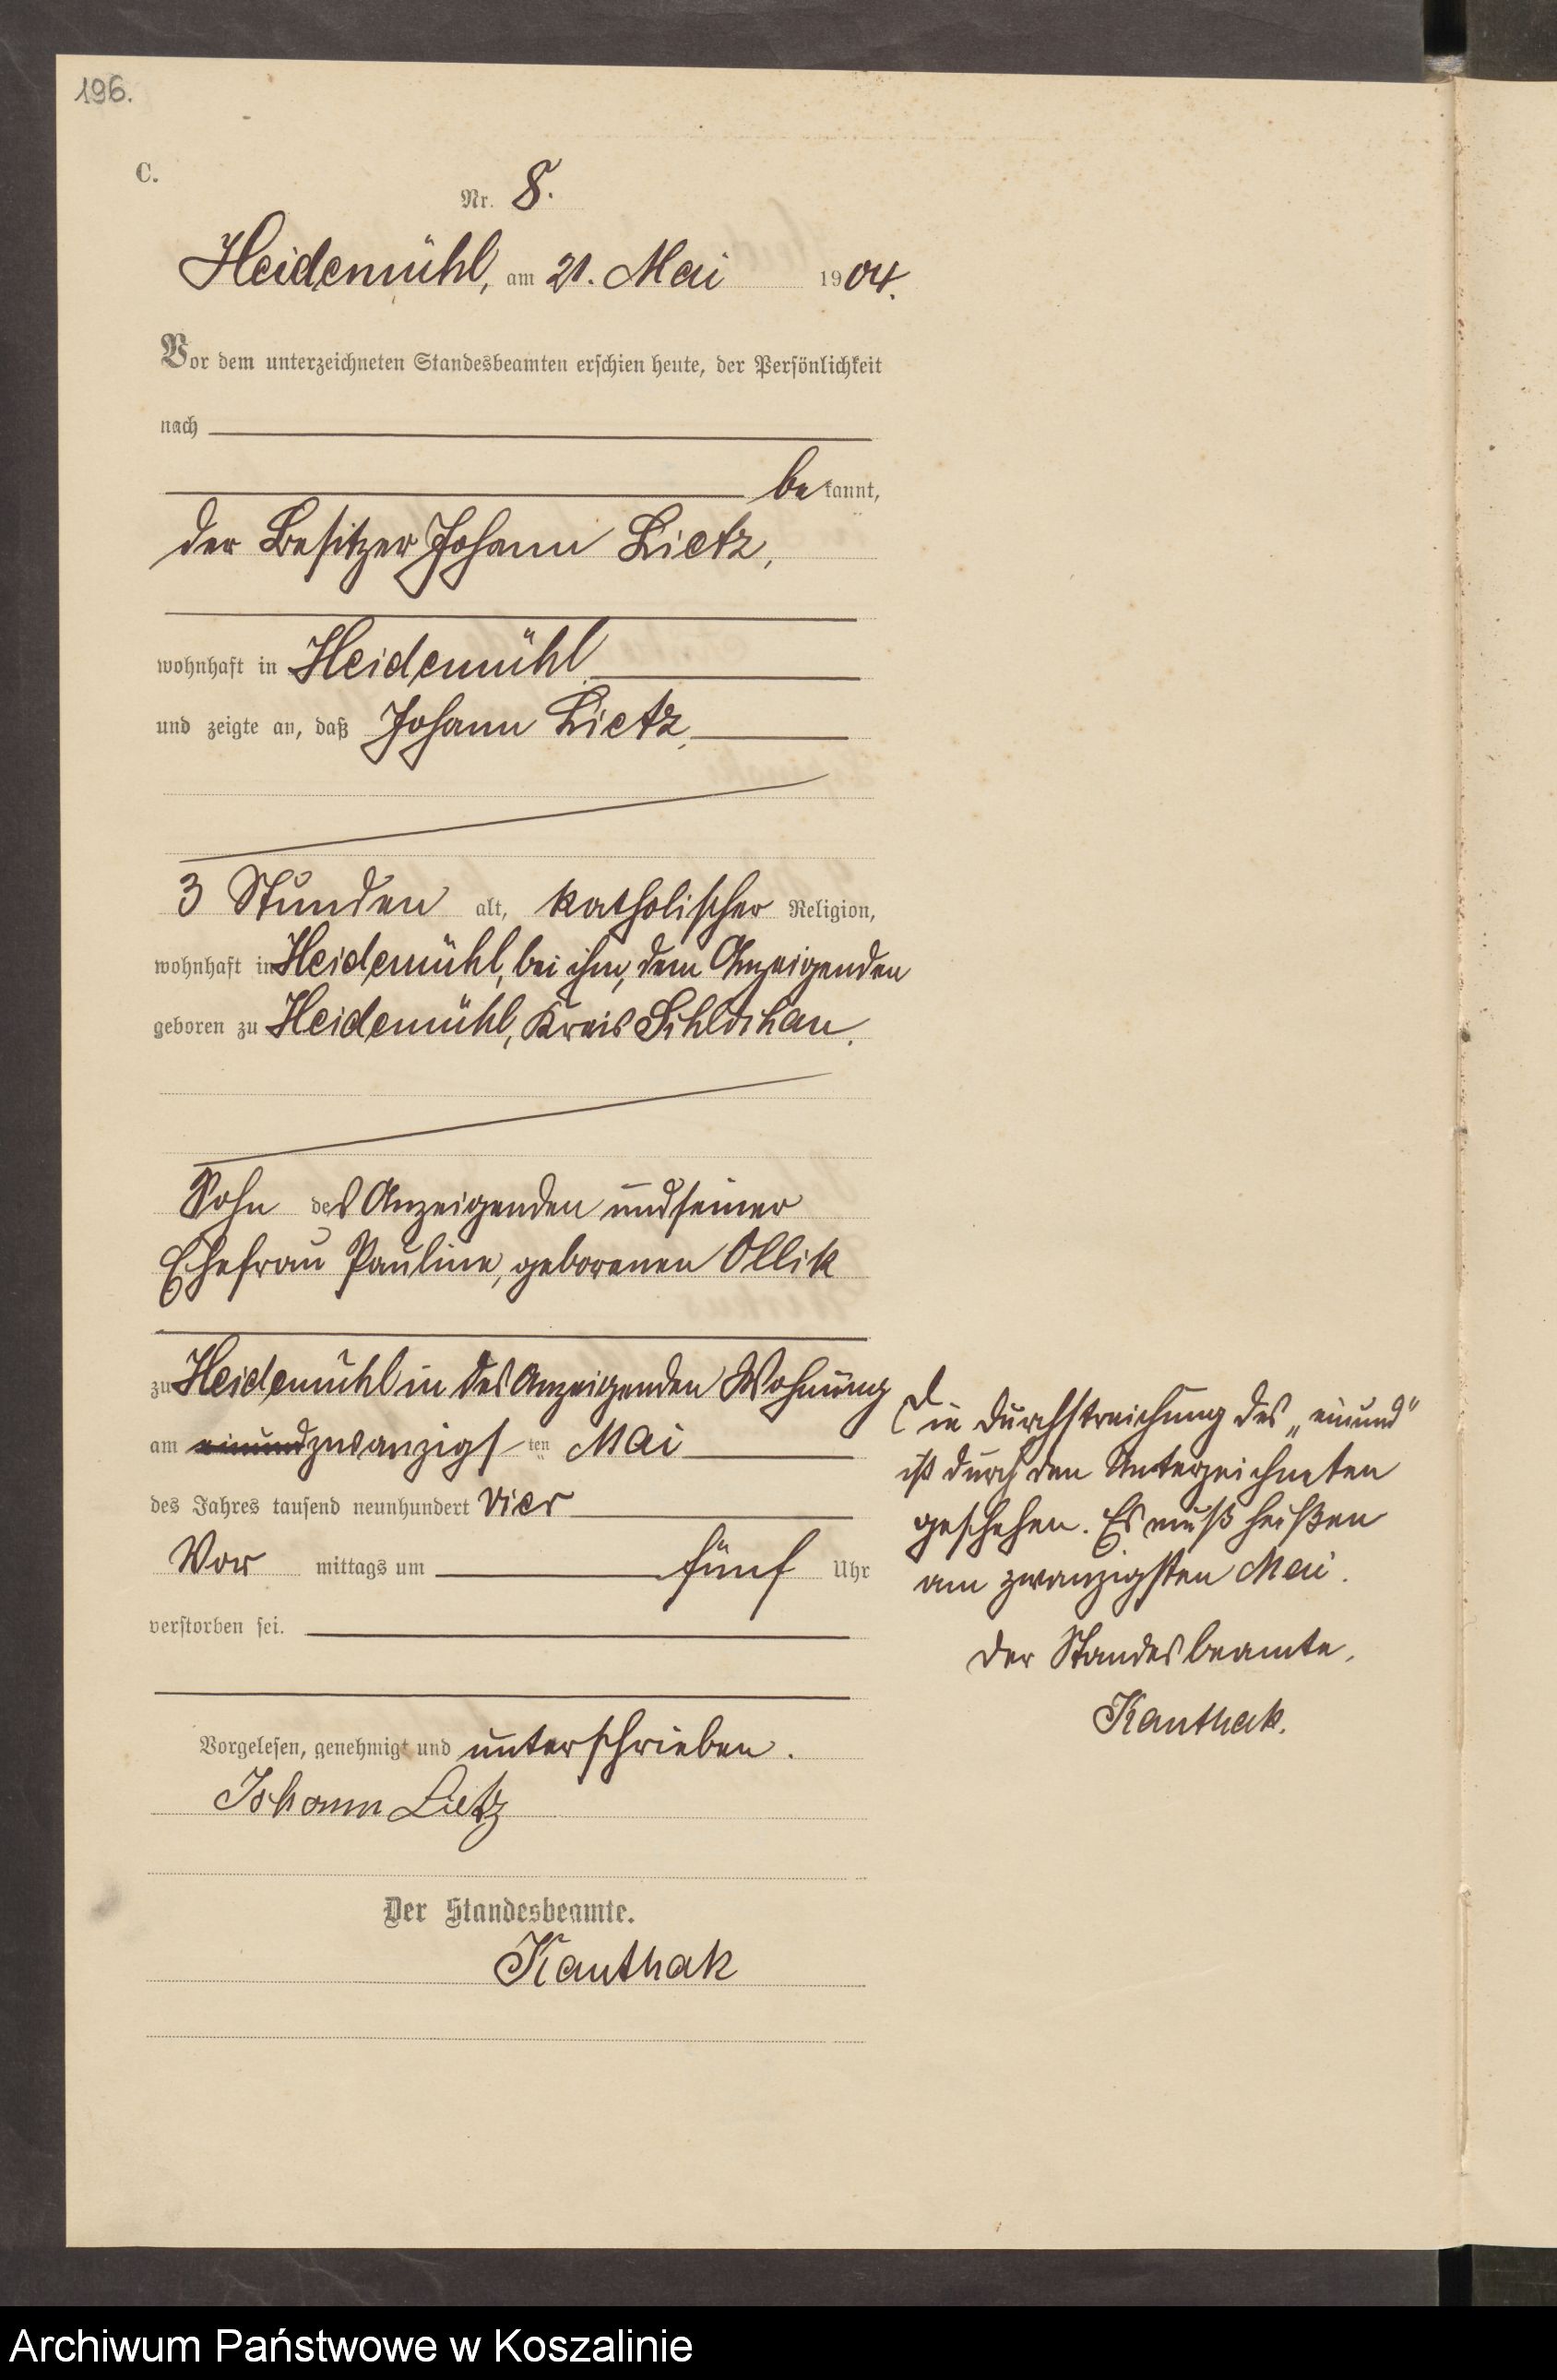 196.
C.
Nr. 8.
Heidemühl, am 21. Mai 1904.
Vor dem unterzeichneten Standesbeamten erschien heute, der Persönlichkeit
nach
bekannt,
der Besitzer Johann Lietz,
wohnhaft in Heidemühl
und zeigte an, daß Johann Lietz,
3 Stunden alt, katholischer Religion,
wohnhaft in Heidemühl, bei ihm, dem Anzeigenden
geboren zu Heidemühl, Kreis Schlochau.
Sohn des Anzeigenden und seiner
Ehefrau Pauline, geborenen Ollik
zu Heidemühl in des Anzeigenden Wohnung
am einundzwanzigsten Mai
des Jahres tausend neunhundert vier
Vor mittags um fünf Uhr
verstorben sei.
Vorgelesen, genehmigt und unterschrieben.
Johann Lietz
Der Standesbeamte.
Kanthak
Die Durchstreichung des „einund"
ist durch den Unterzeichneten
geschehen. Es muß heißen
am zwanzigsten Mai.
Der Standesbeamte.
Kanthak.
Archiwum Państwowe w Koszalinie